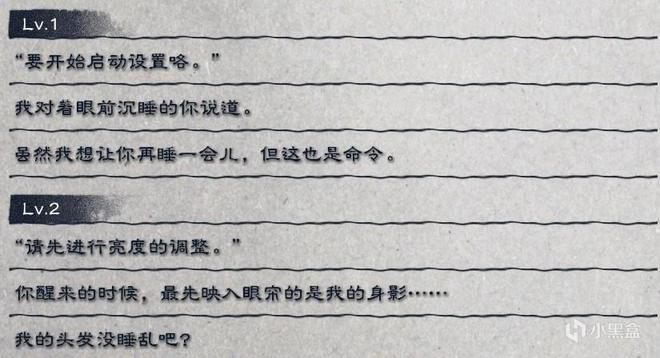 Lv.1
“要开始启动设置咯。”
我对着眼前沉睡的你说道。
虽然我想让你再睡一会儿，但这也是命令。
Lv.2
“请先进行亮度的调整。”
你醒来的时候，最先映入眼帘的是我的身影……
我的头发没睡乱吧？
小黑盒